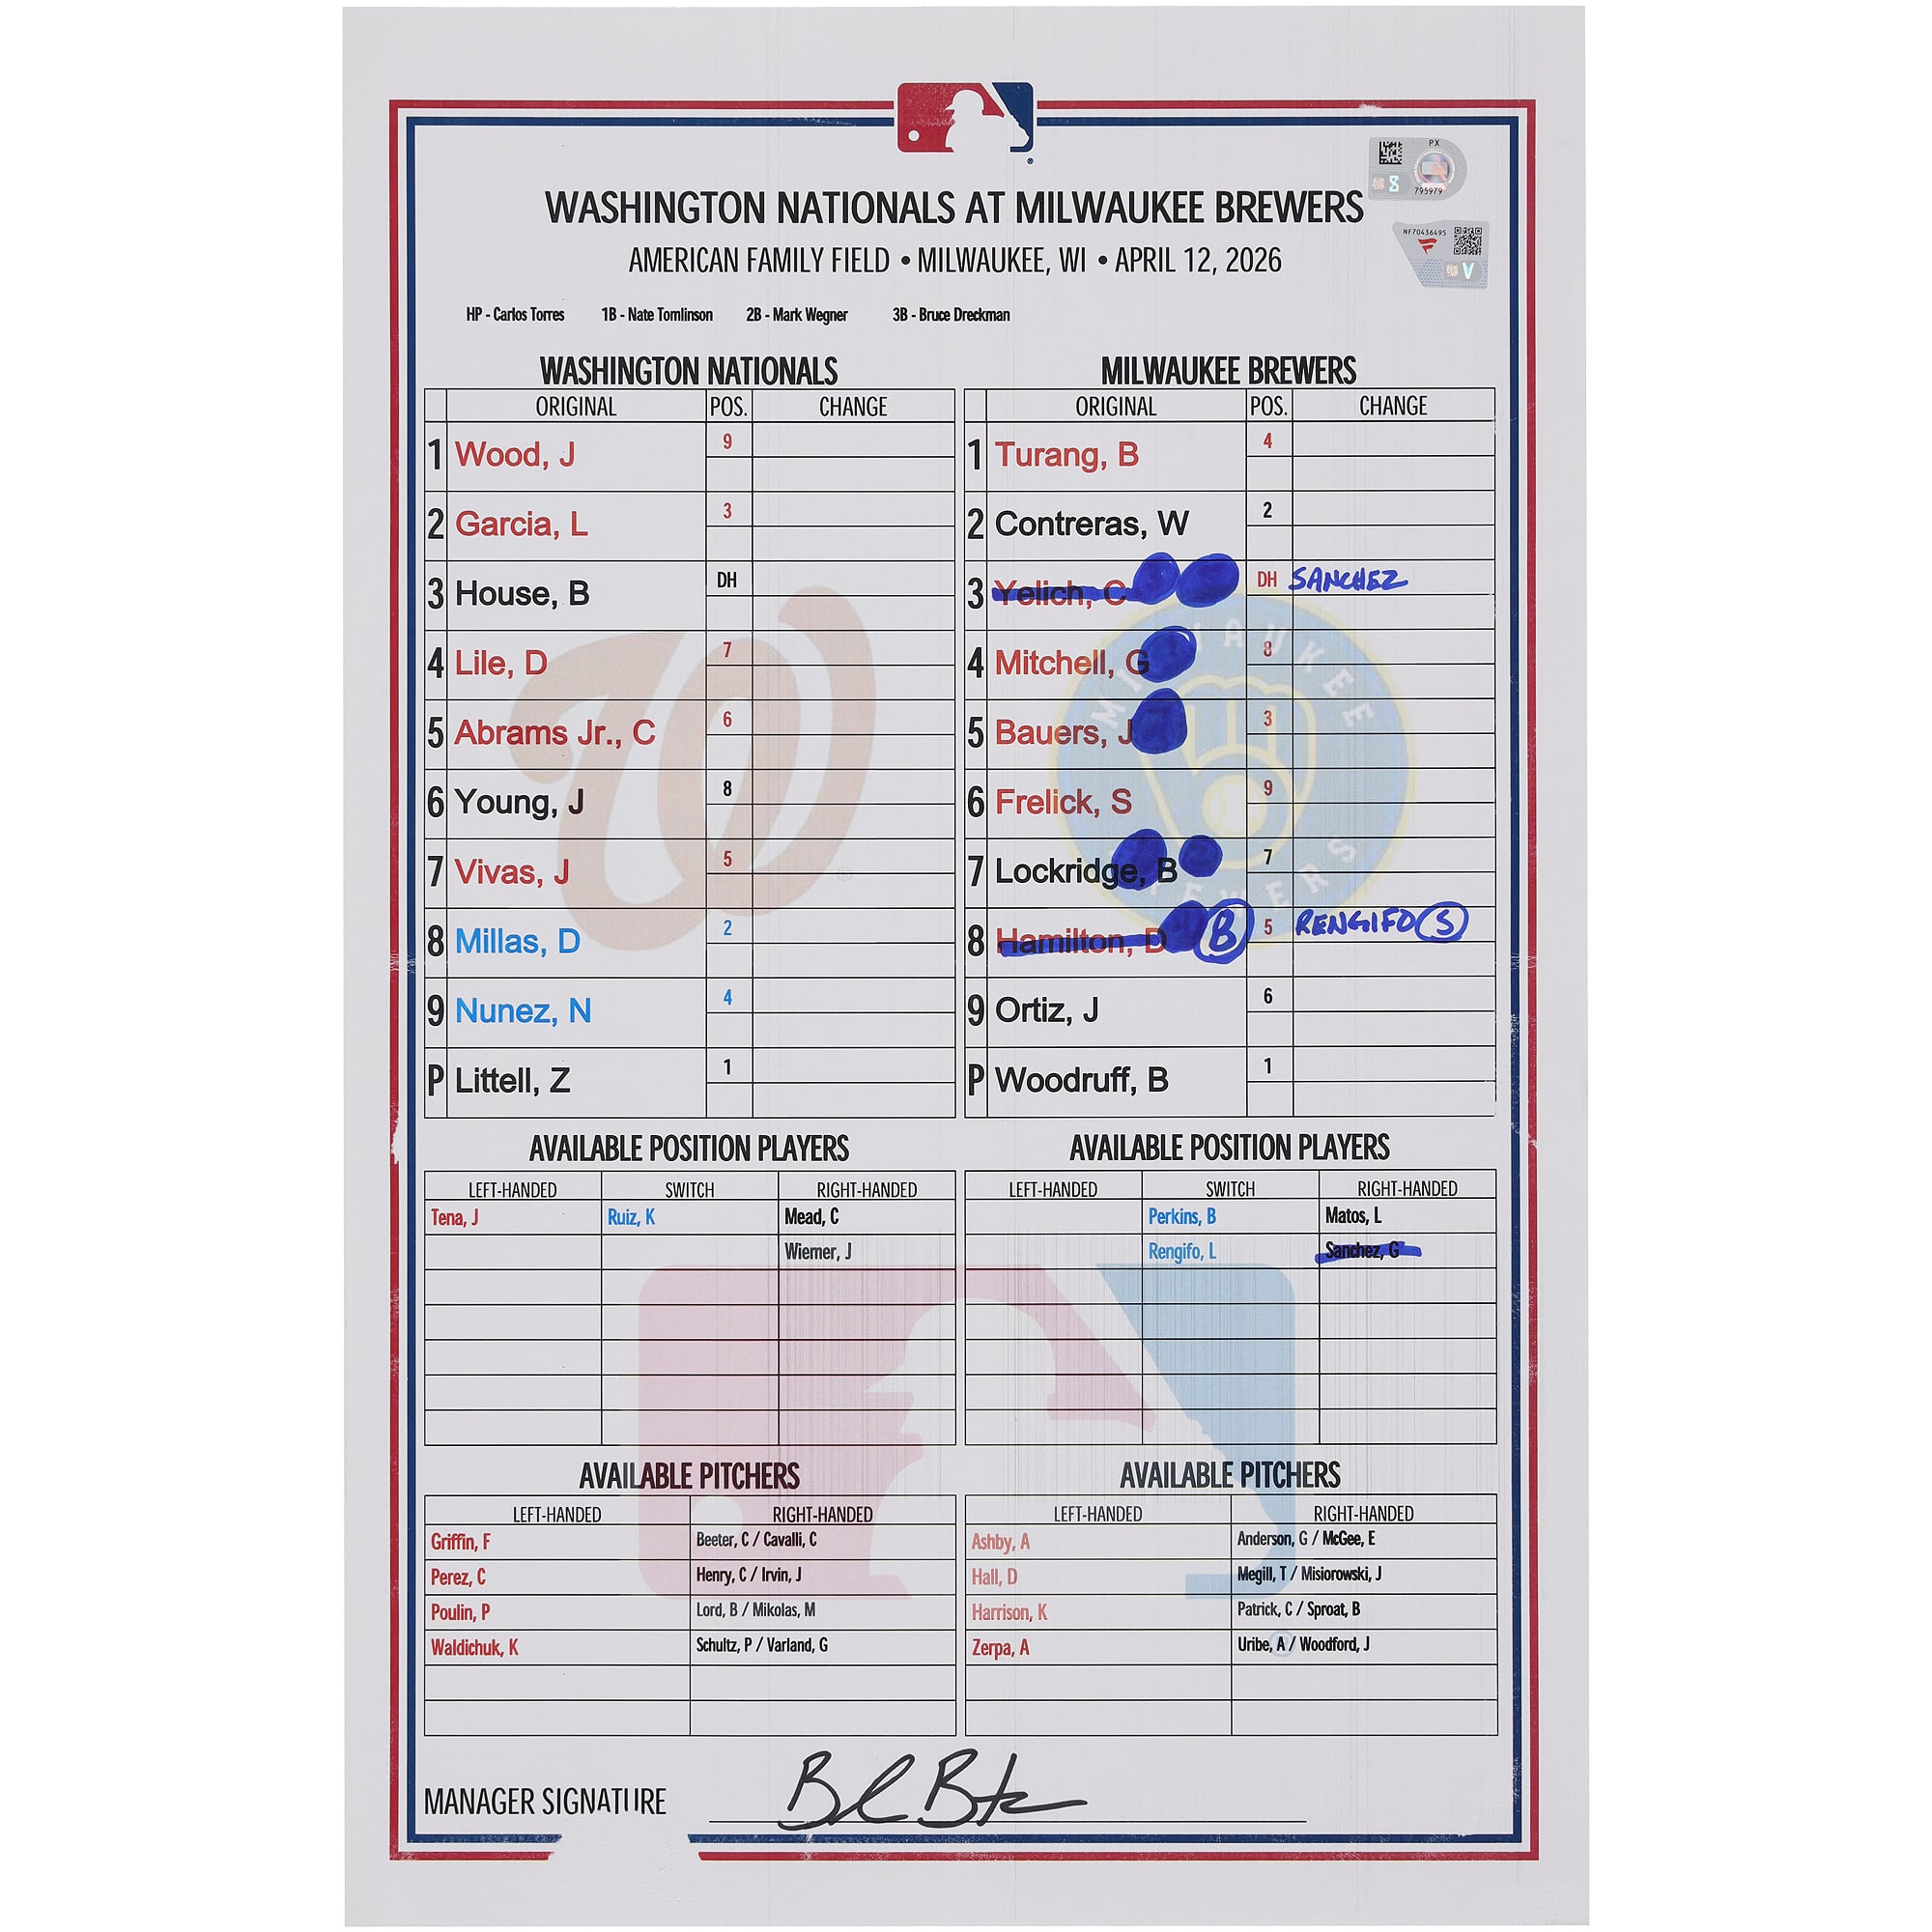 PX
8
795979
WASHINGTON NATIONALS AT MILWAUKEE BREWERS
NF70436495
V
AMERICAN FAMILY FIELD • MILWAUKEE, WI • APRIL 12, 2026
HP - Carlos Torres 1B - Nate Tomlinson 2B - Mark Wegner 3B - Bruce Dreckman
WASHINGTON NATIONALS
ORIGINAL POS. CHANGE
1 Wood, J 9
2 Garcia, L 3
3 House, B DH
4 Lile, D 7
5 Abrams Jr., C 6
6 Young, J 8
7 Vivas, J 5
8 Millas, D 2
9 Nunez, N 4
P Littell, Z 1
MILWAUKEE BREWERS
ORIGINAL POS. CHANGE
1 Turang, B 4
2 Contreras, W 2
3 Yelich, C DH SANCHEZ
4 Mitchell, G 8
5 Bauers, J 3
6 Frelick, S 9
7 Lockridge, B 7
8 Hamilton, D B 5 RENGIFO S
9 Ortiz, J 6
P Woodruff, B 1
W
MILWAUKEE
BREWERS
AVAILABLE POSITION PLAYERS
LEFT-HANDED SWITCH RIGHT-HANDED
Tena, J Ruiz, K Mead, C
Wiemer, J
AVAILABLE POSITION PLAYERS
LEFT-HANDED SWITCH RIGHT-HANDED
Perkins, B Matos, L
Rengifo, L Sanchez, G
AVAILABLE PITCHERS
LEFT-HANDED RIGHT-HANDED
Griffin, F Beeter, C / Cavalli, C
Perez, C Henry, C / Irvin, J
Poulin, P Lord, B / Mikolas, M
Waldichuk, K Schultz, P / Varland, G
AVAILABLE PITCHERS
LEFT-HANDED RIGHT-HANDED
Ashby, A Anderson, G / McGee, E
Hall, D Megill, T / Misiorowski, J
Harrison, K Patrick, C / Sproat, B
Zerpa, A Uribe, A / Woodford, J
MANAGER SIGNATURE